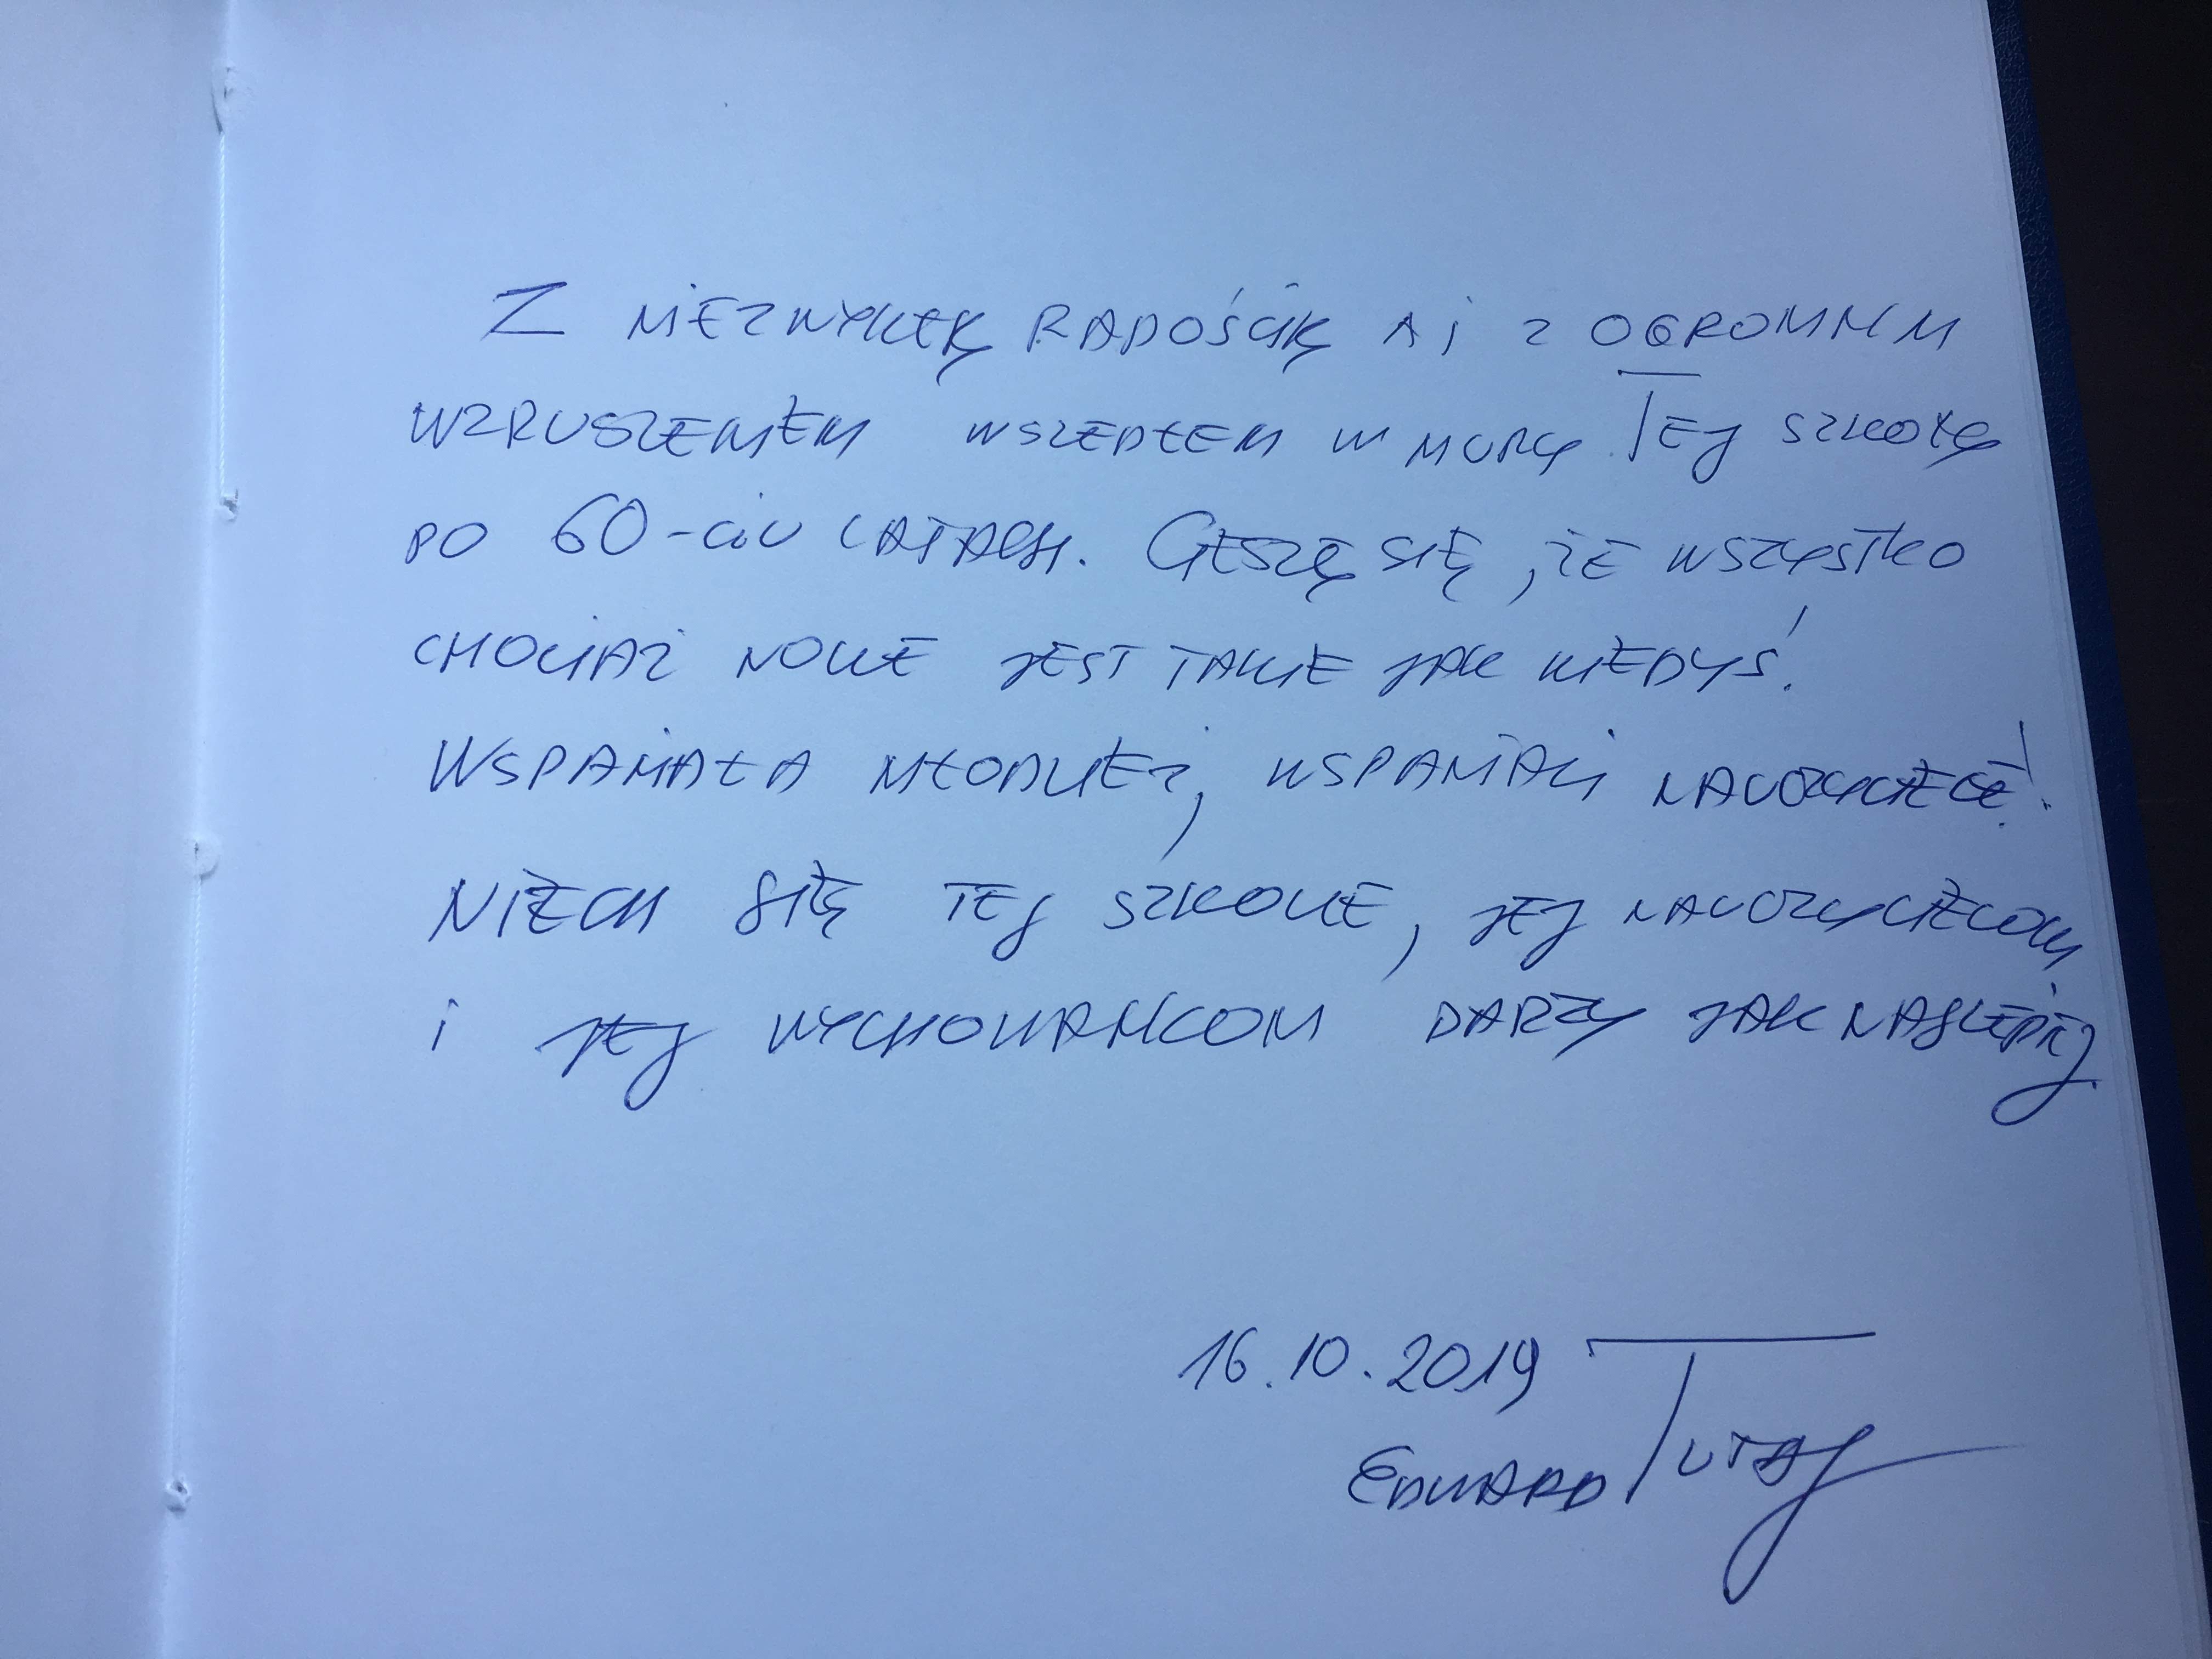 Z NIEZWYKŁĄ RADOŚCIĄ A I Z OGROMNYM
WZRUSZENIEM WSZEDŁEM W MURY TEJ SZKOŁY
PO 60-CIU LATACH. CIESZĘ SIĘ, ŻE WSZYSTKO
CHOCIAŻ NOWE JEST TAKIE JAK KIEDYŚ!
WSPANIAŁA MŁODZIEŻ, WSPANIALI NAUCZYCIELE!
NIECH SIĘ TEJ SZKOLE, JEJ NAUCZYCIELOM
I JEJ WYCHOWANKOM DARZY JAK NAJLEPIEJ
16.10.2019
EDWARD TUTAJ